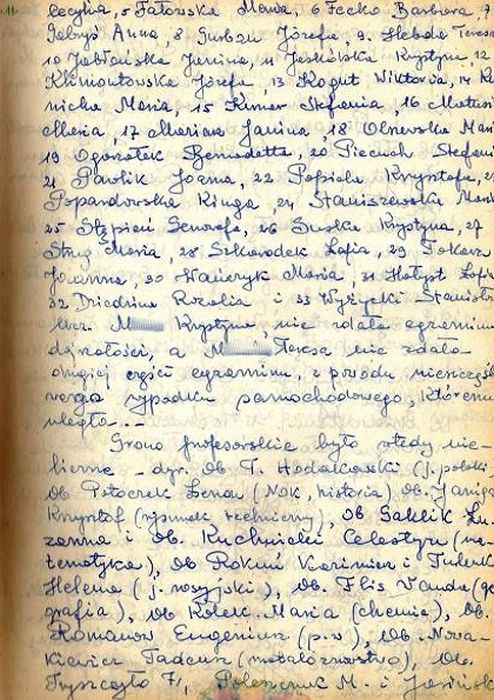 Cecylia, 5 Fatowska Maria, 6 Fecko Barbara, 7
Gabryś Anna, 8 Gurbsz Józefa, 9. Hebda Teresa
10 Jabłońska Janina, 11 Jasłóbska Krystyna, 12
Klimontowska Józefa, 13 Kogut Wiktoria, 14
nicka Maria, 15 Kumor Stefania, 16 Matusi
Maria, 17 Marian Janina, 18 Olszewska Mar
19 Ogorzałek Bernadetta, 20 Piecuch Stefani
21 Pawlik Joanna, 22 Popiela Krystyna, 23
Popardowska Kinga, 24 Staniszewska Mari
25 Stępień Genowefa, 26 Suska Krystyna, 27
Strug Maria, 28 Szkaradek Zofia, 29 Tokarz
Joanna, 30 Wańczyk Maria, 31 Hołyst Zofia
32 Dziedzina Rozalia i 33 Wyżycki Stanisław
M Krystyna, nie zdała egzaminu
dojrzałości, a M Teresa nie zdała
drugiej części egzaminu, z powodu nieszczęśli
wego wypadku samochodowego, któremu
uległa...
Grono profesorskie było wtedy nie-
liczne - dyr. Ob T. Hodakowski (j. polski
Ob Ptoczek Zenon (NOK, historia) Ob. Janiga
Krzysztof (rysunek techniczny), Ob Saklik Zu
zanna i Ob. Kuchnicki Celestyn (ma-
tematyka), Ob Rokosz Kazimierz i
Helena (j. rosyjski), Ob. Flis Wanda (ge
grafia), Ob Kołek Maria (chemia), Ob.
Romanow Eugeniusz (p.w), Ob. Nowa-
kiewicz Tadeusz (metaloznawstwo), Ob.
i